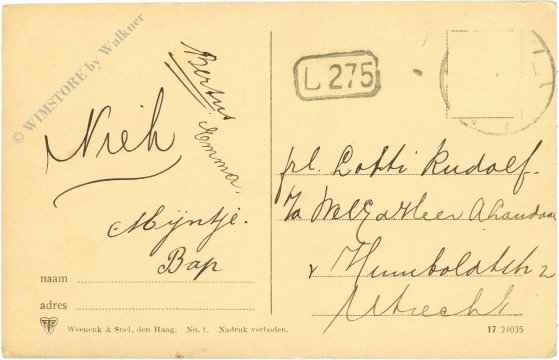 © WIMSTORE by Walkner
Bertus
Emma.
Nieh
Mijntje.
Bap
naam
adres
Weenenk & Snel, den Haag. No. 1. Nadruk verboden.
L 275
Lotti Rudolf
Humboldtstr 2
Utrecht
17 24035